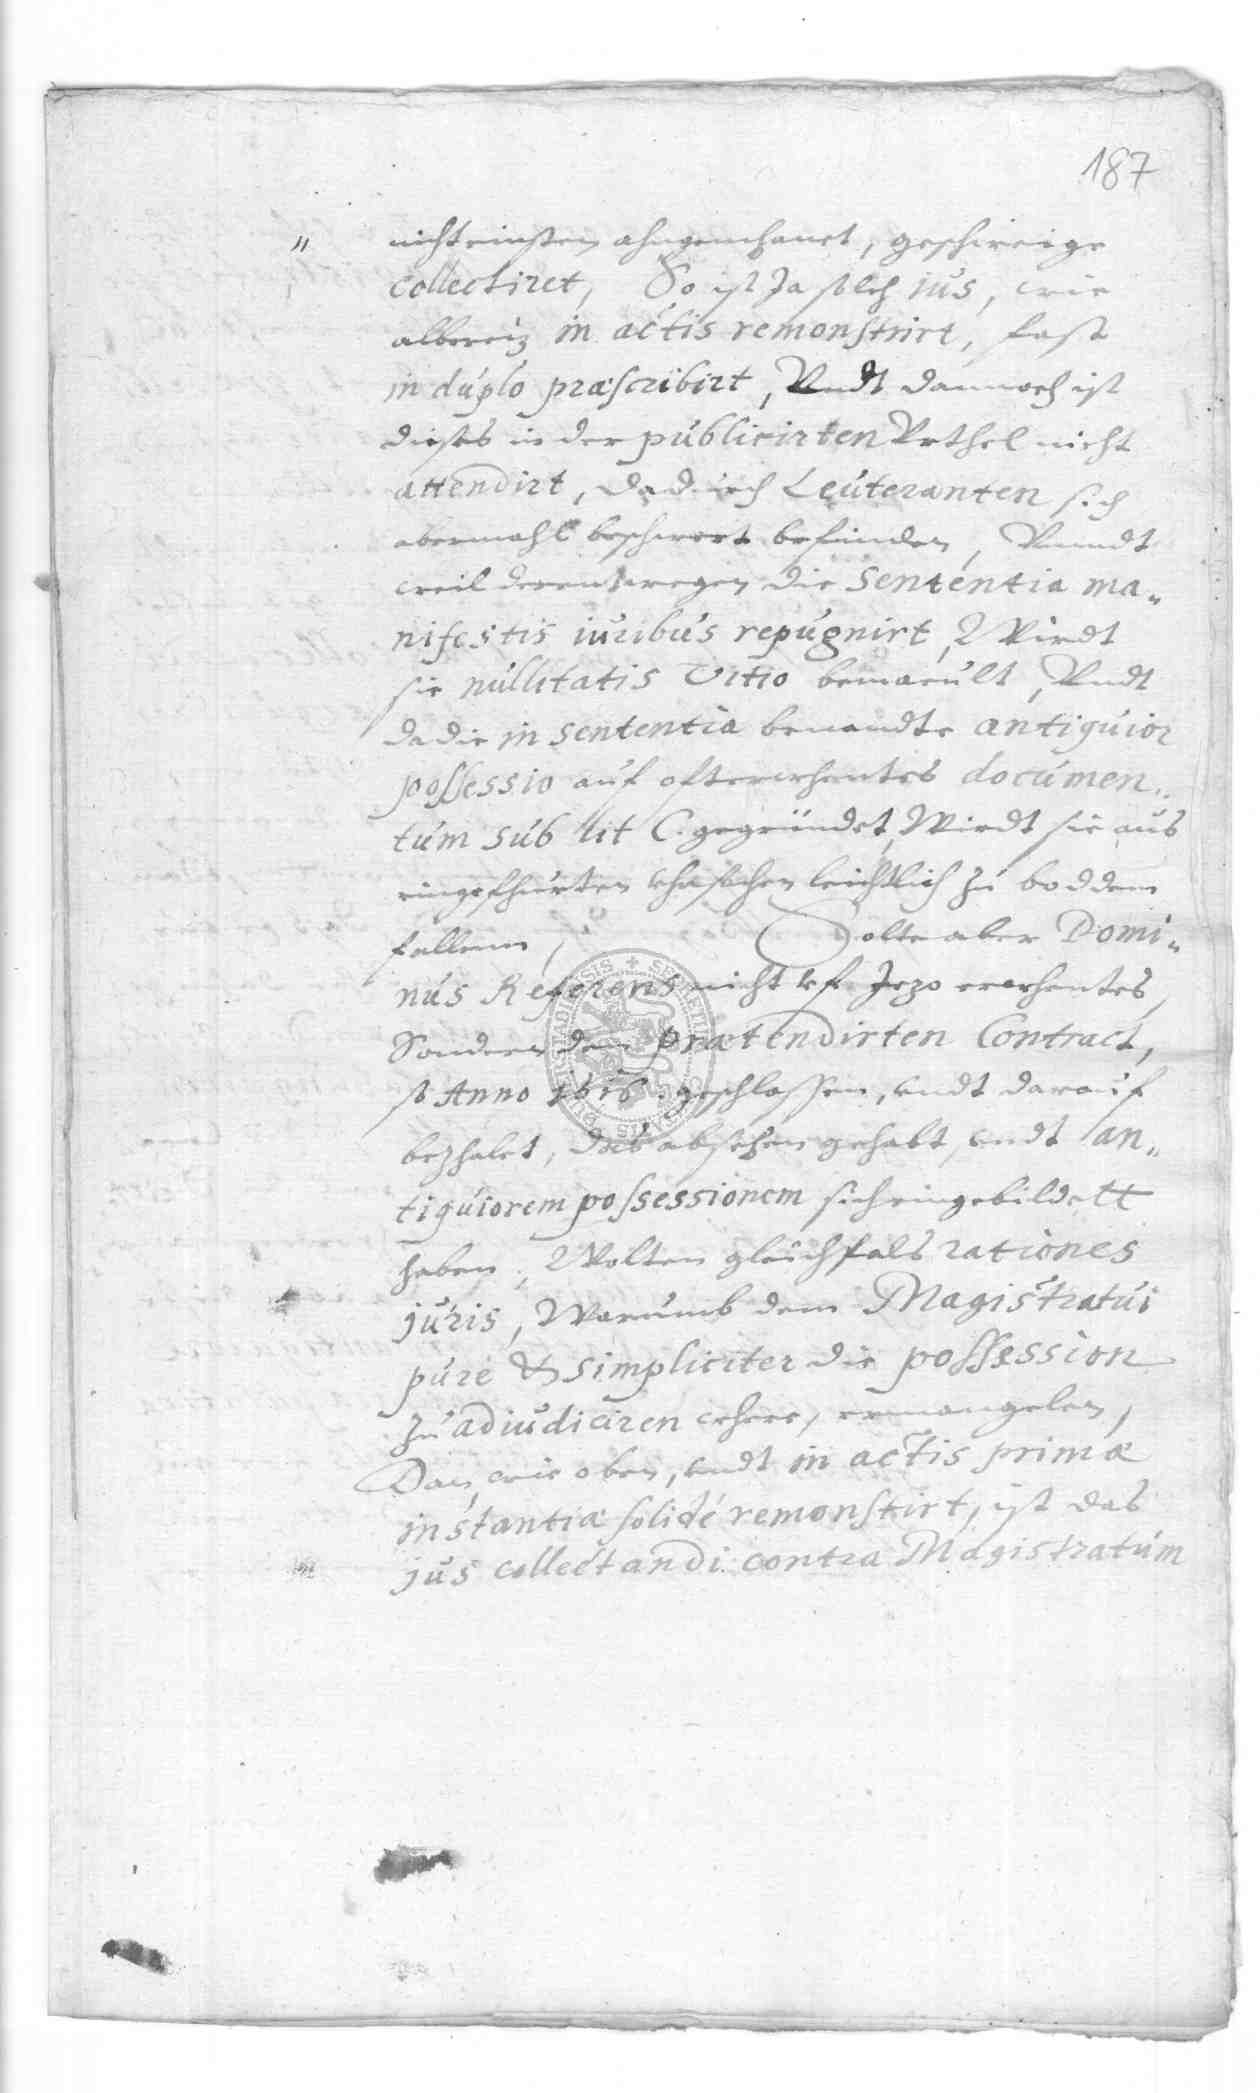 187
" nicht einsten ahngemahnet, geschweige
collectiret, So ist Ja solch ius, wie
albereiz in actis remonstrirt, fast
in duplo præscribirt, Undt dannoch ist
dieses in der publicirten Urthel nicht
attendirt, Dadurch Leuteranten sich
abermahl beschwert befinden, Unndt
weil derentwegen die Sententia ma„
nifestis iuribus repugnirt, Wirdt
sie nullitatis vitio bemacult, Undt
da die in sententia benandte antiquior
possessio auf ofterwehntes documen„
tum sub lit C. gegründet, Wirdt sie aus
eingefhurten uhrsachen leichtlich zu boddem
fallenn, Solte aber Domi„
nus Referens nicht uf Jezo erwehntes,
Sondern den prætendirten Contract,
so Anno 1616. geschlossen, undt darauf
bezhalet, das absehen gehabt, undt an„
tiquiorem possessionem sich eingebildett
haben, Wolten gleichfals rationes
juris, Warumb dem Magistratui
pure & simpliciter die possession
zu adiudiciren wehre, ermangelen,
Dan wie oben, undt in actis primæ
instantiæ solidé remonstirt, ist das
jus collectandi contra Magistratum